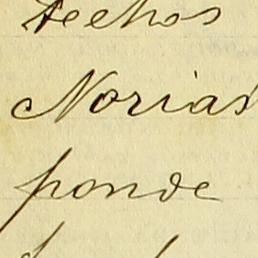 techos
Norias
ponde